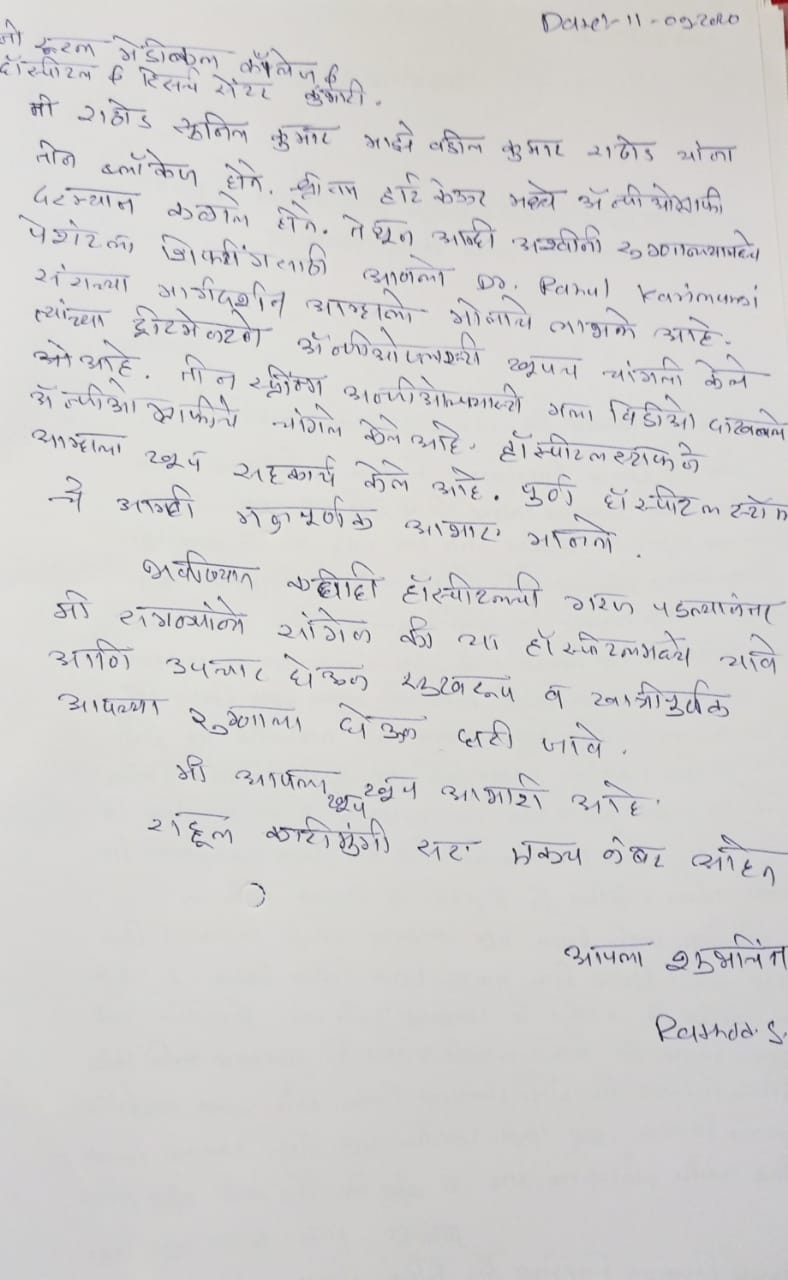 Date:- 11-09-2020
मी रूरल मेडीकल कॉलेज &
हॉस्पीटल & रिसर्च सेंटर कुंभारी.
मी राठोड सुनिल कुमार माझे वडील कुमार राठोड यांना
तीन ब्लॉकेज होते. हार्ट केअर मध्ये अॅन्जीओग्राफी
दरम्यान कळाले होते. तेथून आम्ही अश्वीनी रुग्णालयामध्ये
पेशंटला शिफ्टींगसाठी आणलो Dr. Rahul Karimungi
सरांच्या मार्गदर्शन आम्हाला मोलाचे लाभले आहे.
त्यांच्या ट्रीटमेन्टने अॅन्जीओप्लास्टी खूपच चांगली केले
ओ आहे. तीन अन्जीओप्लास्टी मला विडीओ दाखवले
अॅन्जीओग्राफीचे चांगले केले आहे. हॉस्पीटल स्टाफने
आम्हाला खूप सहकार्य केले आहे. पुर्ण हॉस्पीटल स्टॉफ
चे आम्ही आभार मानतो.
भविष्यात कधीही हॉस्पीटलची गरज पडल्यानंतर
मी सगळ्यांना सांगेल की या हॉस्पीटलमध्ये यावे
आणि उपचार घेऊन सुखरूप व खात्रीपुर्वक
आपल्या रुग्णाला घेऊन घरी जावे.
मी आपला खूप खूप आभारी आहे.
राहूल कारीमुंगी सर एक नंबर आहेत
आपला शुभचिंत
Rathod. S.